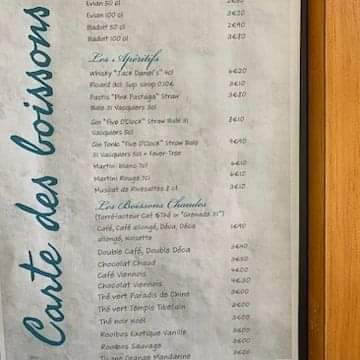 Carte des boissons
Evian 50 cl
Evian 100 cl 3€20
Badoit 50 cl 2€90
Badoit 100 cl 3€80
Les Apéritifs
Whisky "Jack Daniel's" 4cl 6€20
Ricard 2cl Sup sirop 0.10€ 3€10
Pastis "Pink Pastaga" Straw 3€10
Bale 31 Vacquiers 2cl
Gin "Five O'Clock" Straw Bale 31
Vacquiers 5cl
Gin Tonic "Five O'Clock" Straw Bale
31 Vacquiers 5cl + Fever-Tree
Martini blanc 7cl
Martini Rouge 7cl
Muscat de Rivesaltes 8 cl 3€10
Les Boissons Chaudes
(Torréfacteur Caf &Thé in "Grenade 31")
Café, Café allongé, Déca, Déca 1€90
allongé, Noisette
Double Café, Double Déca
Chocolat Chaud
Café Viennois
Chocolat Viennois
Thé vert Paradis de Chine
Thé vert Temple Tibetain
Thé noir noël
Rooibos Exotique Vanille
Rooibos Sauvage
Tisane Orange Mandarine